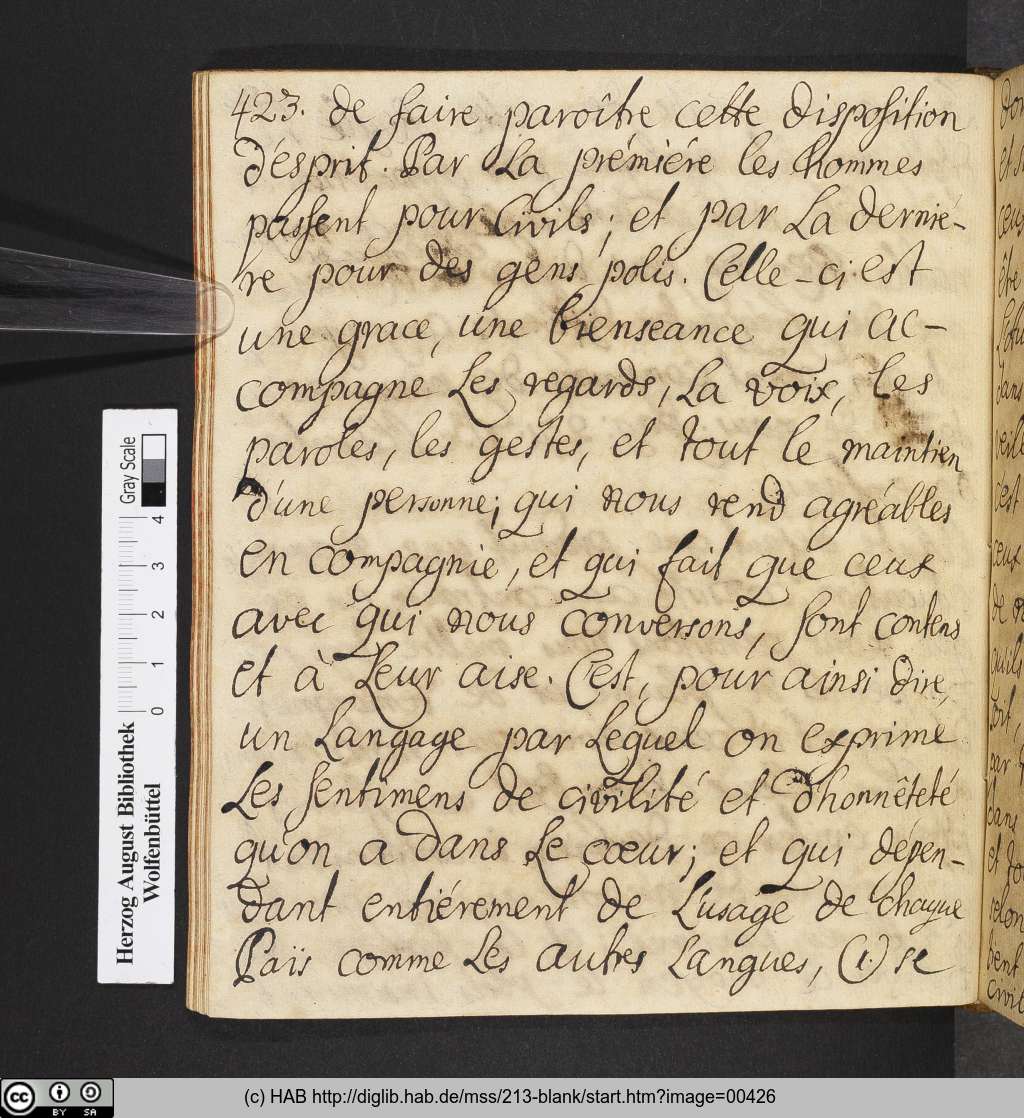 423. de faire paroître cette disposition
d'ésprit. Par La prémiére les hommes
passent pour Civils; et par La dernié-
re pour des gens polis. Celle-ci est
une grace, une bienseance qui ac-
compagne Les regards, La voix, les
paroles, les gestes, et tout le maintien
d'une personne; qui nous rend agréables
en compagnie, et qui fait que ceux
avec qui nous conversons, sont contens
et à Leur aise. C'est, pour ainsi dire,
un Langage par Lequel on exprime
Les sentimens de civilité et d'honnêteté
qu'on a dans Le cœur; et qui dépen-
dant entiérement de L'usage de chaque
Païs comme Les autres Langues, (1.) se
Gray Scale
0 1 2 3 4
Herzog August Bibliothek
Wolfenbüttel
cc BY SA
(c) HAB http://diglib.hab.de/mss/213-blank/start.htm?image=00426